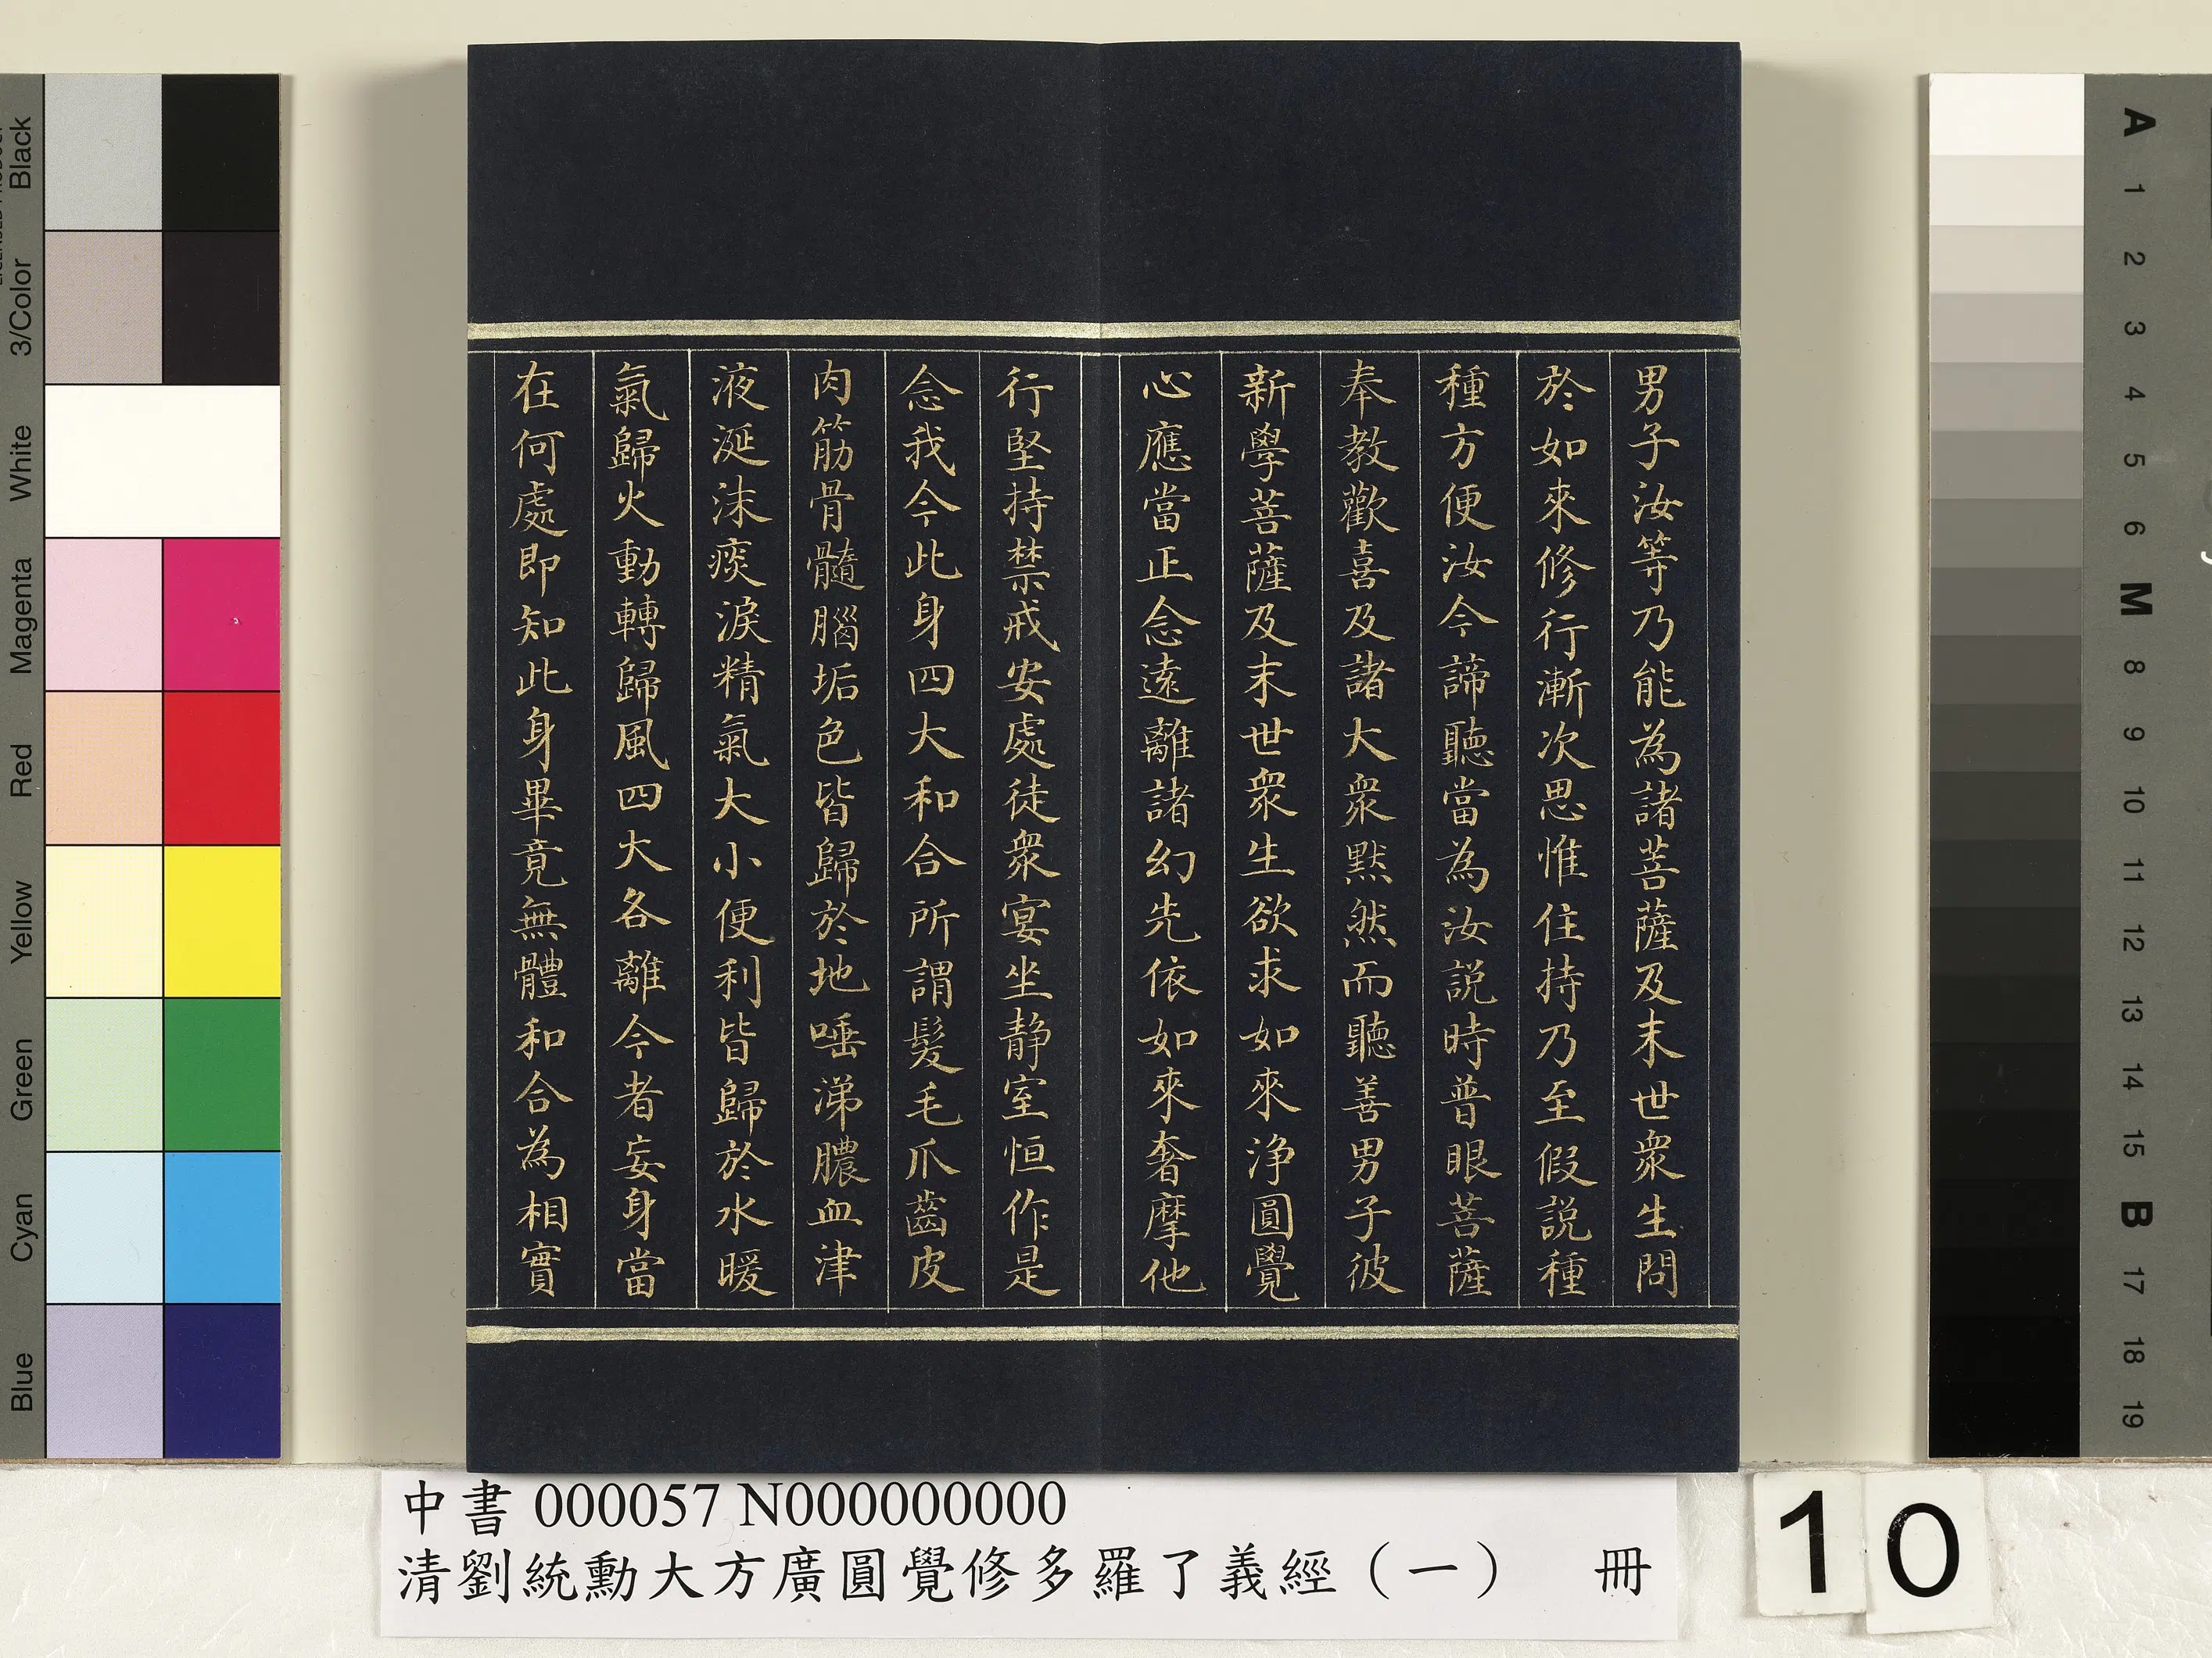 男子汝等乃能為諸菩薩及末世衆生問
於如來修行漸次思惟住持乃至假説種
種方便汝今諦聽當為汝説時普眼菩薩
奉教歡喜及諸大衆默然而聽善男子彼
新學菩薩及末世衆生欲求如來浄圓覺
心應當正念遠離諸幻先依如來奢摩他
行堅持禁戒安處徒衆宴坐静室恒作是
念我今此身四大和合所謂髮毛爪齒皮
肉筋骨髓腦垢色皆歸於地唾涕膿血津
液涎沫痰淚精氣大小便利皆歸於水暖
氣歸火動轉歸風四大各離今者妄身當
在何處即知此身畢竟無體和合為相實
中書 000057 N000000000
清劉統勳大方廣圓覺修多羅了義經（一） 冊
10
Black
3/Color
White
Magenta
Red
Yellow
Green
Cyan
Blue
A
1
2
3
4
5
6
M
8
9
10
11
12
13
14
15
B
17
18
19